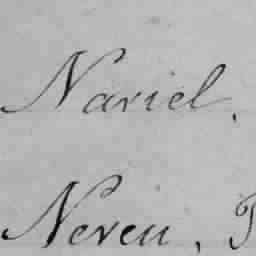 Nariel.
Neveu,